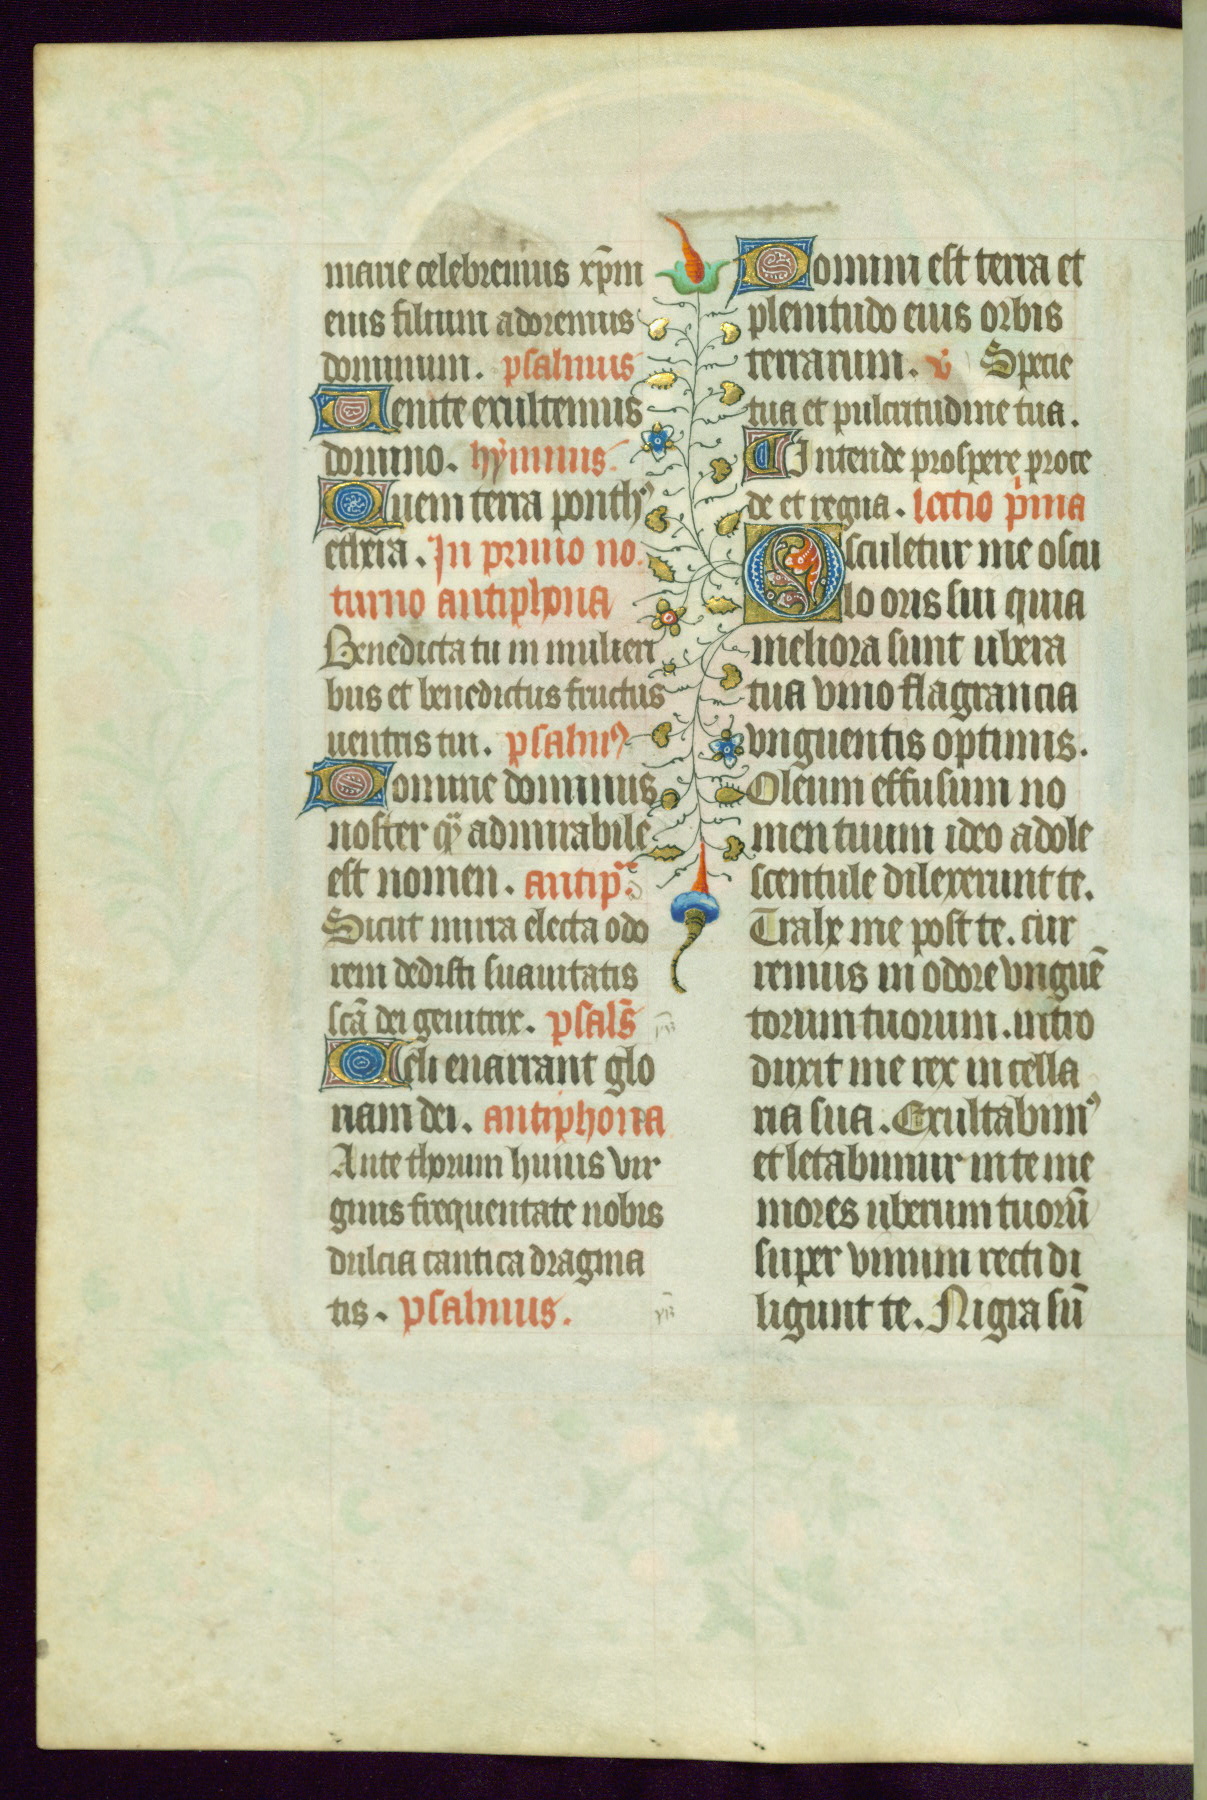 marie celebremus xp̄m
eius filium adoremus
dominum. psalmus
Uenite exultemus
domino. hymnus.
Quem terra ponthꝰ
etheīa. In primo no
turno antiphona
Benedicta tu in mulieri
bus et benedictus fructus
uentris tui. psalmꝰ
Domine dominus
noster qͣ admirabile
est nomen. antip̄.
Sicut mirra electa odo
rem dedisti suauitatis
scā dei genitrix. psals̄
Celi enarrant glo
riam dei. antiphona
Ante thorum huius vir
ginis frequentate nobis
dulcia cantica dragma
tis. psalmus.
Domini est terra et
plenitudo eius orbis
terrarum. v Specie
tua et pulcritudine tua.
Intende prospere proce
de et regna. lectio pͥma
Osculetur me oscu
lo oris sui quia
meliora sunt ubera
tua vino flagrancia
vnguentis optimis.
Oleum effusum no
men tuum ideo adole
scentule dilexerunt te.
Trahe me post te. cur
remus in odore vnguē
torum tuorum. intro
duxit me rex in cella
ria sua. Exultabimꝰ
et letabimur in te me
mores uberum tuorū
super vinum recti di
ligunt te. Nigra sū